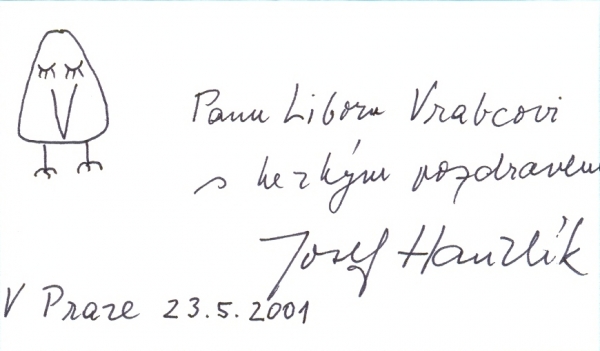 Panu Liboru Vrabcovi
s hezkým pozdravem
Josef Hanzlík
V Praze 23.5.2001